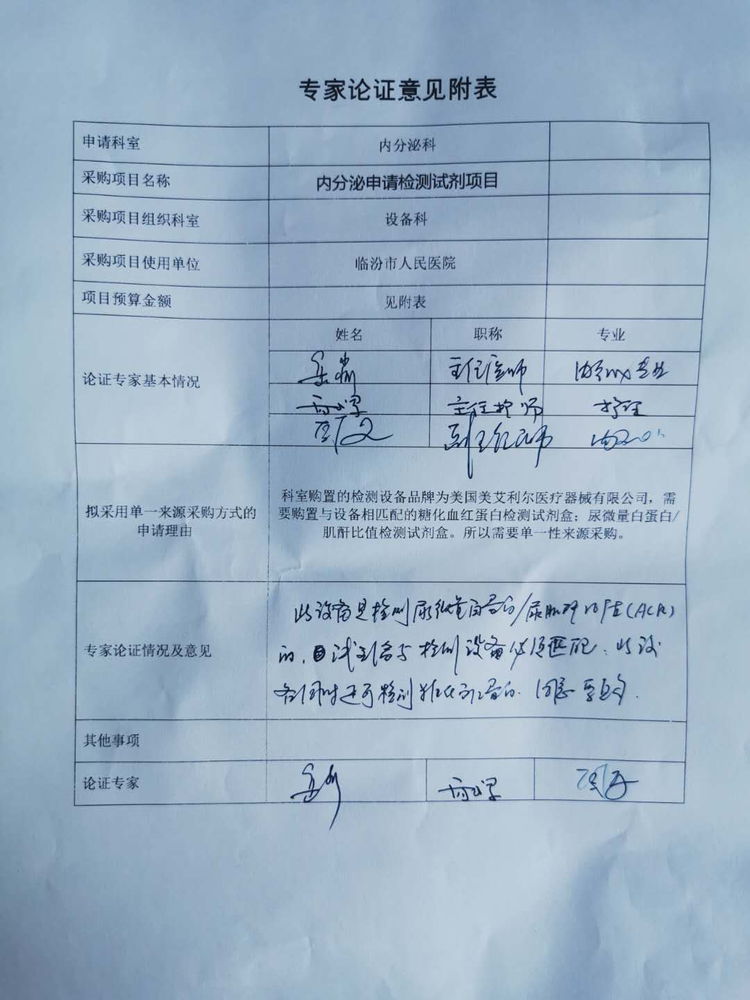 专家论证意见附表
申请科室 内分泌科
采购项目名称 内分泌申请检测试剂项目
采购项目组织科室 设备科
采购项目使用单位 临汾市人民医院
项目预算金额 见附表
论证专家基本情况 姓名 职称 专业
主任医师
主任护师 护理
副主任医师
拟采用单一来源采购方式的
申请理由
科室购置的检测设备品牌为美国美艾利尔医疗器械有限公司，需
要购置与设备相匹配的糖化血红蛋白检测试剂盒；尿微量白蛋白/
肌酐比值检测试剂盒。所以需要单一性来源采购。
专家论证情况及意见
此设备是检测尿微量白蛋白/尿肌酐比值(ACR)
的，试剂盒与检测设备必须匹配，此设
备同时还可检测糖化血红蛋白，同意
其他事项
论证专家